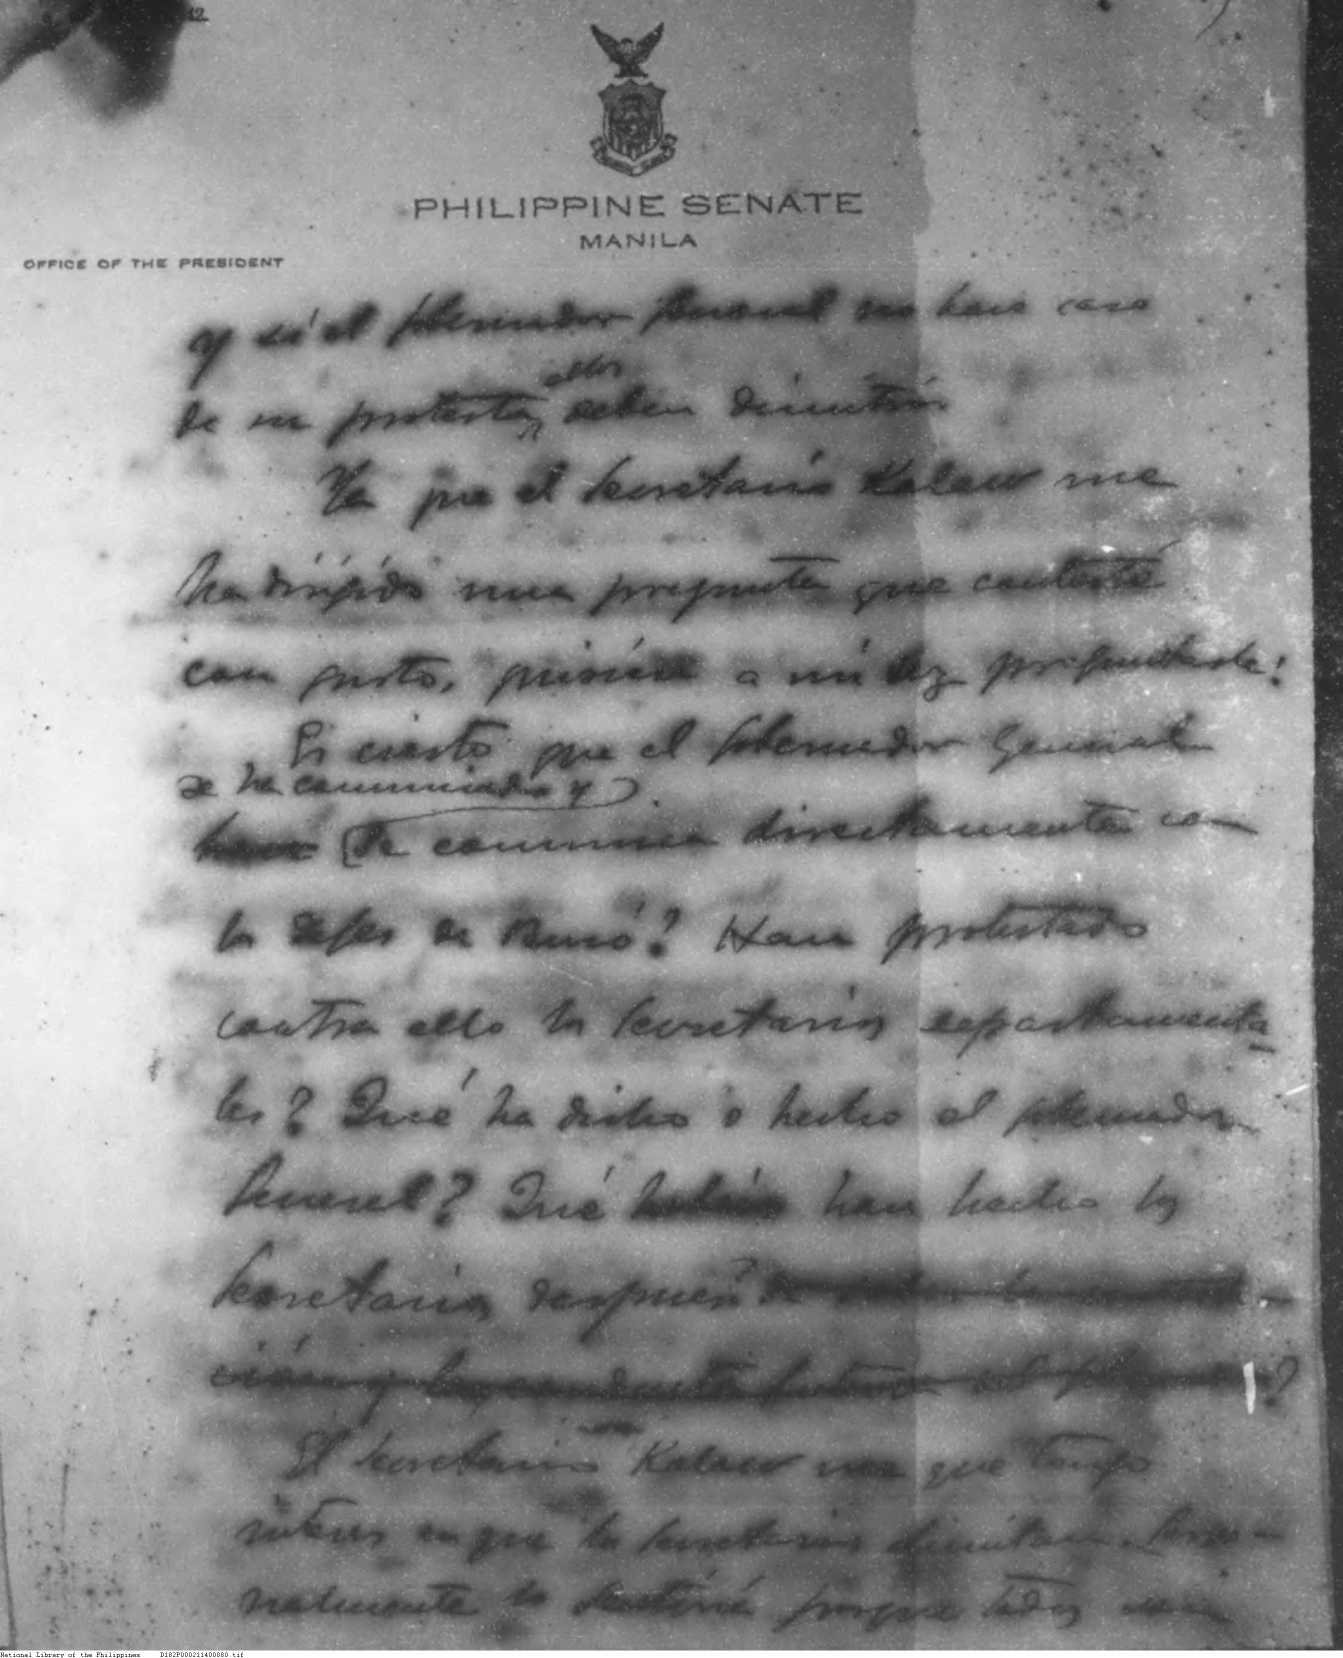 PHILIPPINE SENATE
MANILA
OFFICE OF THE PRESIDENT
y si el Gobernador General no hace caso
ellos
de su protesta, deben dimitir
Ya que el Secretario Kalaw me
ha dirigido una pregunta que contesté
con gusto, quisiera a mi vez preguntarle:
Es cierto que el Gobernador General
se ha comunicado y
se comunica directamente con
los Jefes de Buró? Han protestado
contra ello los Secretarios departamenta-
les? Qué ha dicho o hecho el Gobernador
General? Qué han hecho los
Secretarios después
El Secretario Kalaw que tengo
interés en que los Secretarios dimitan. Perso-
nalmente lo sentiría porque todos son
National Library of the Philippines D182P000211400080.tif